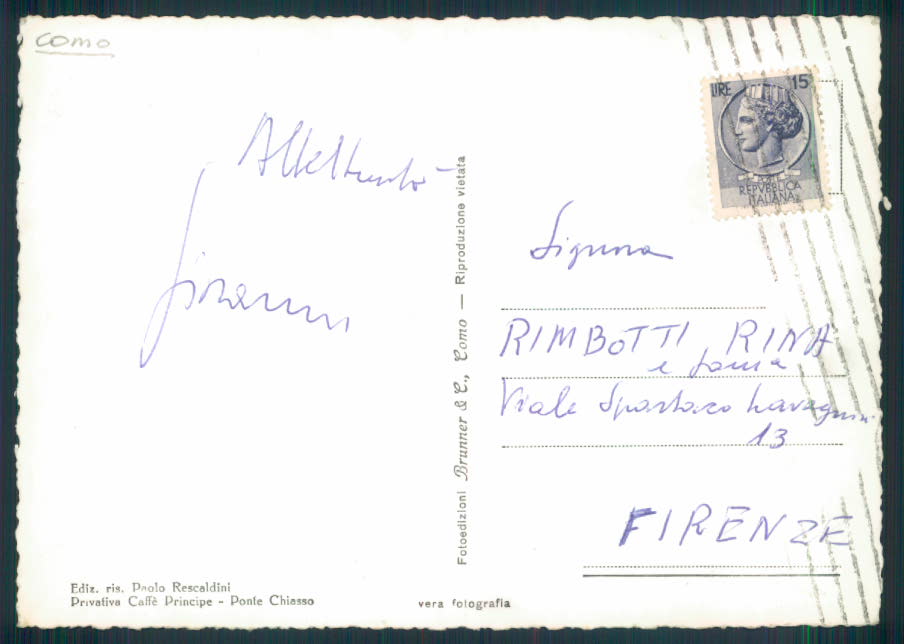 como
LIRE 15
REPVBBLICA
ITALIANA
Giovanni
Fotoedizioni Brunner & C., Como — Riproduzione vietata
Signora
RIMBOTTI RINA
e
Viale Spartaco Lavagnini
13
FIRENZE
Ediz. ris. Paolo Rescaldini
Privativa Caffè Principe - Ponte Chiasso
vera fotografia